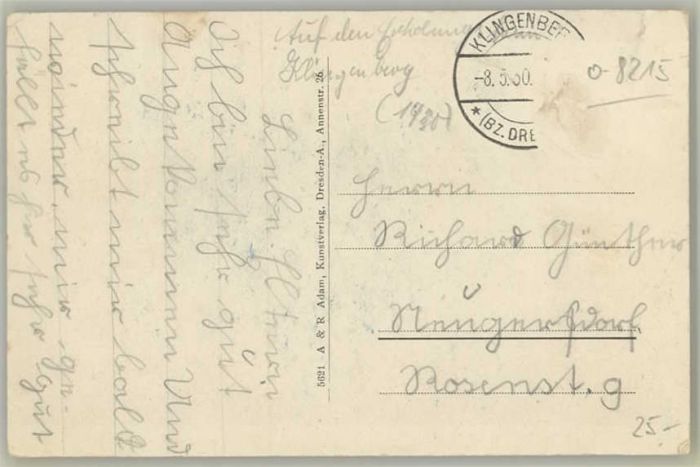 Auf den
Klingenberg
(1930)
Liebe Eltern
Ich bin sehr gut
Angekommen Und
schreibt mir balt
wieder, mir ge-
fällt es hir sehr gut
5621 A & R Adam, Kunstverlag, Dresden-A., Annenstr. 26
KLINGENBER
-8.5.30.
* (BZ. DRE
0-8215
Herrn
Richard Günther
Neugersdorf
Rosenst. 9
25.-